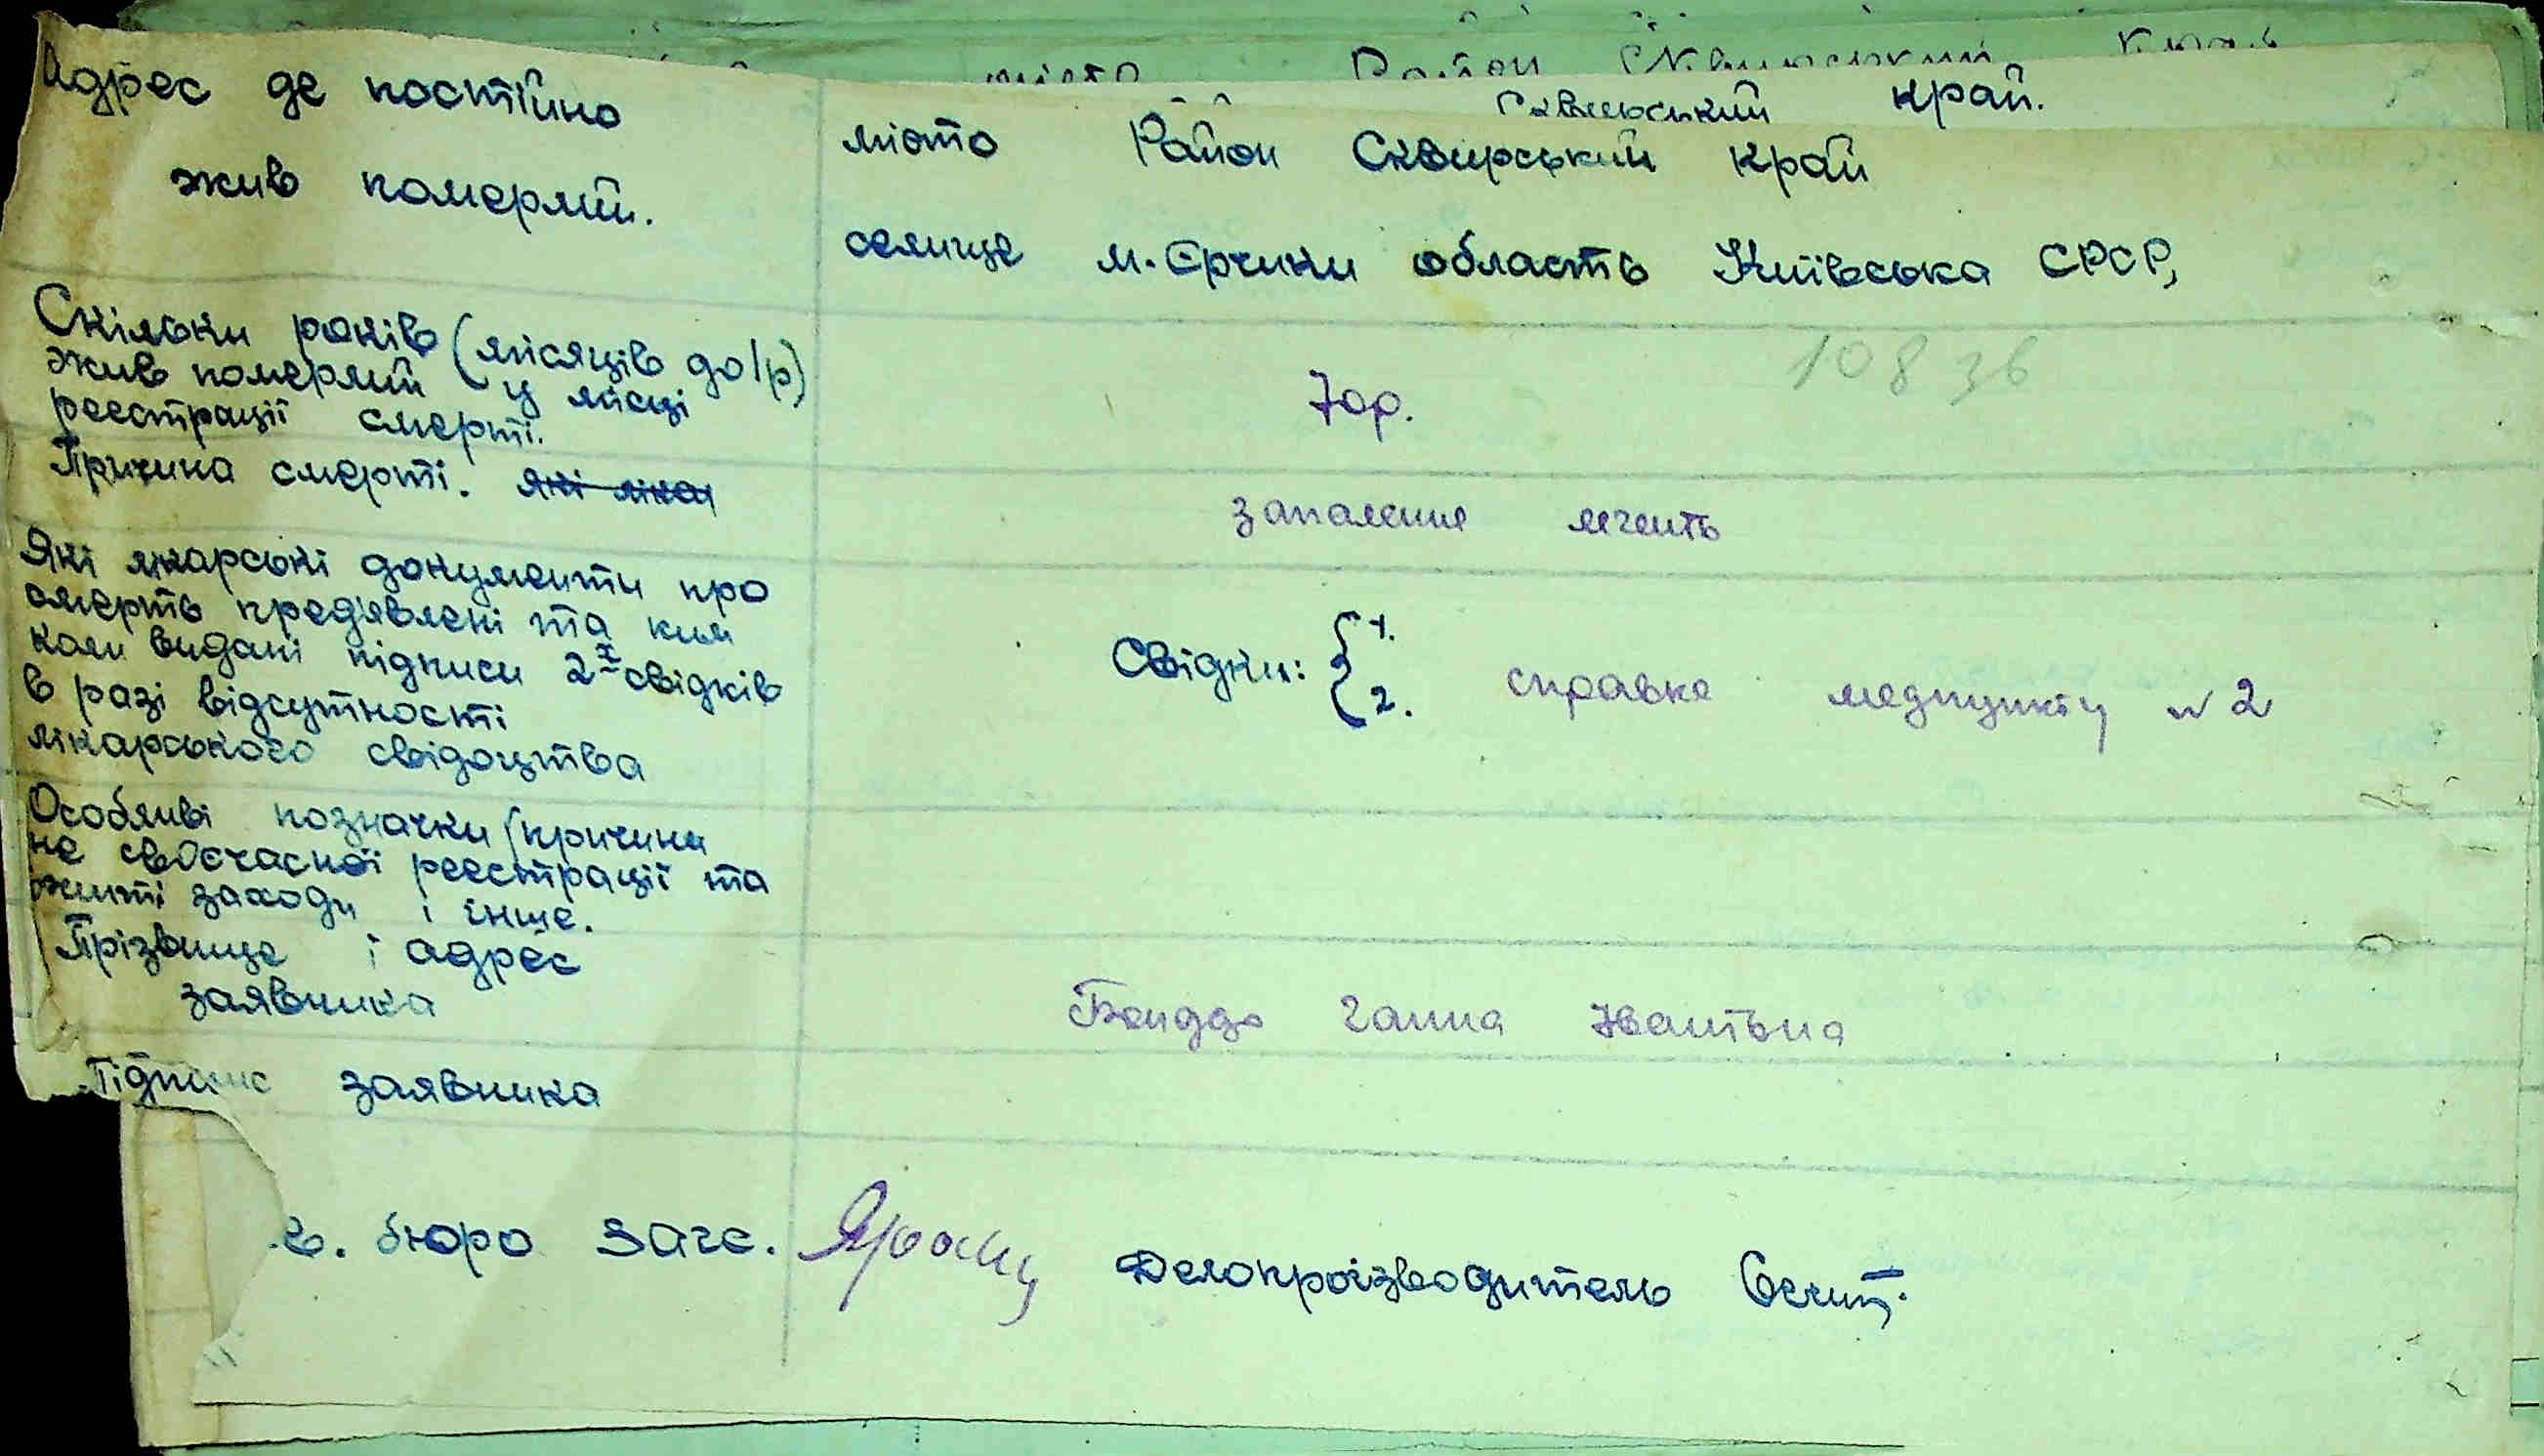 місто Район Сквирський Край
Сквирський край.
Адрес де постійно
жив померлий.
місто Район Сквирський край
селище м. Єрчики область Київська СРСР,
Скільки років (місяців до 1р)
жив померлий у місці
реєстрації смерті.
7ор.
10836
Причина смерті. які лікар
запаление легенть
Які лікарські документи про
смерть предявлені та ким
коли видані підписи 2х свідків
в разі відсутності
лікарського свідоцтва
Свідки: { 1.
2. справка медпункту № 2
Особливі позначки (причина
не своєчасної реєстрації та
житті заходи і інше.
Прізвище і адрес
заявника
Ганна Іванівна
Підпис заявника
в. бюро загс. Делопроізводитель